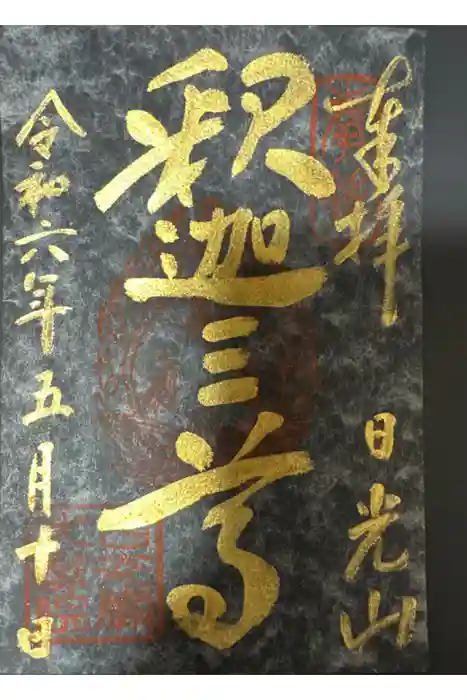 奉拝
日光山
釈迦三尊
令和六年五月十日